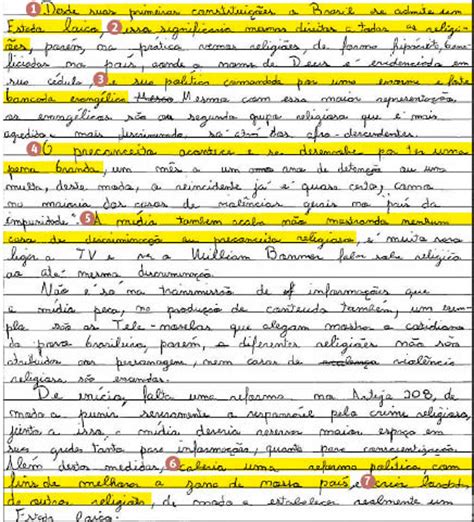 1 Desde suas primeiras constituições o Brasil se admite um
Estado laico, 2 isso significaria mesmos direitos a todas as religi-
ões, porém, na prática vemos religiões, de forma hipócrita bene-
ficiadas no país, aonde o nome de Deus é evidenciado em
sua cédula, 3 e sua política comandada por uma enorme e forte
bancada evangélica. Mesmo com essa maior representação,
os evangélicos são o segundo grupo religioso que é mais
agredido e mais descriminado, só atrás dos afro-descendentes.
4 O preconceito acontece e se desenvolve por ter uma
pena branda, um mês a um ano de detenção ou uma
multa, deste modo, a reincidente já é quase certa, como
na maioria dos casos de violências gerais no país da
impunidade. 5 A mídia também acaba não mostrando nenhum
caso de descriminação ou preconceito religioso, é muito raro
ligar a TV e ver o William Bonner falar sobre religião
ou até mesmo discriminação.
Não é só na transmissão de informações que
a mídia peca, na produção de conteúdo também, um exem
plo são as Tele-novelas que alegam mostrar o cotidiano
do povo brasileiro, porém, a diferentes religiões não são
atribuídas aos personagens, nem casos de violência
religiosa são encenados.
De início, falta uma reforma no Artigo 208, de
modo a punir severamente o responsável pelo crime religioso,
junto a isso a mídia deveria reservar maior espaço em
suas grades tanto para informação, quanto para conscientização.
Além destas medidas, 6 caberia uma reforma política, com
fins de melhorar a zona de nosso país, 7 e criar bancadas
de outras religiões, de modo a estabelecer realmente um
Estado laico.